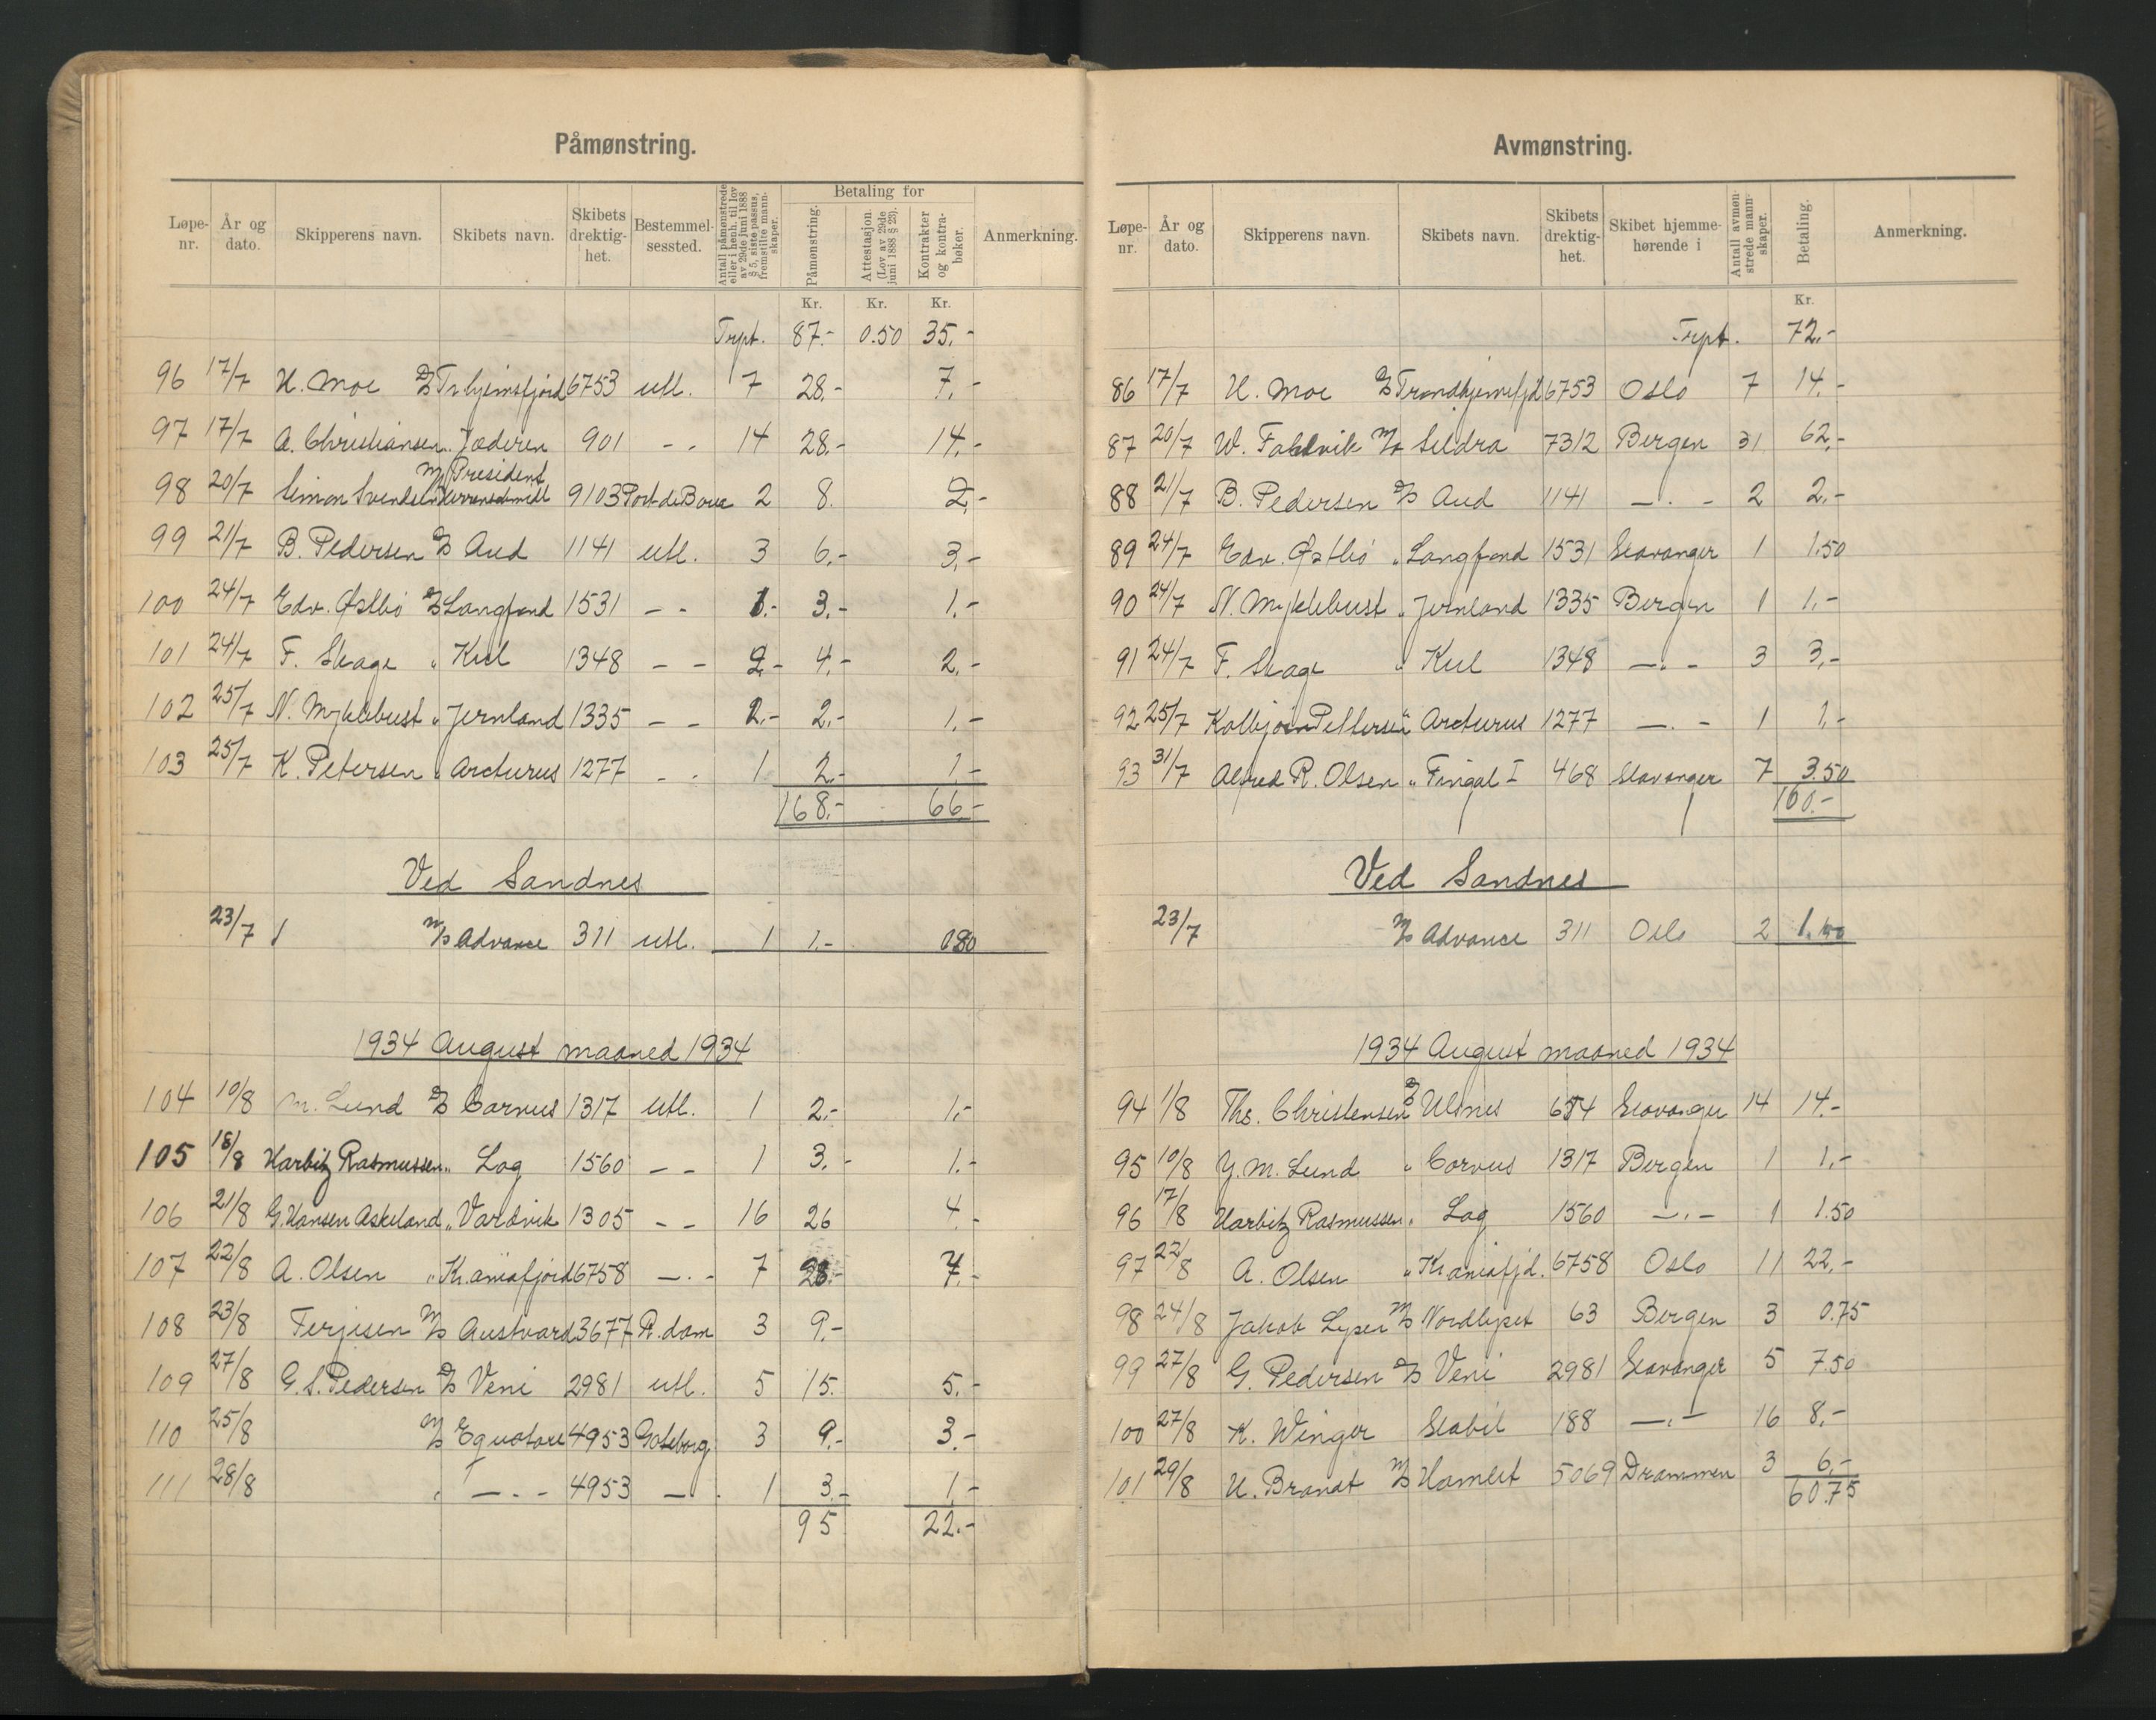 Påmønstring.
Løpe-nr. År og dato. Skipperens navn. Skibets navn. Skibets drektig-het. Bestemmel-sessted. Antall påmønstrede eller i henh. til lov av 29de juni 1888 § 5, siste passus, fremstilte mann-skaper. Betaling for Påmønstring. Attestasjon. (Lov av 29de juni 1888 § 23). Kontrakter og kontra-bøker. Anmerkning.
Kr. Kr. Kr.
Trpt. 87.- 0.50 35.-
96 17/7 H. Moe D/S Trhjemsfjord 6753 utl. 7 28.- 7.-
97 17/7 A. Christiansen " Jæderen 901 - - 14 28.- 14.-
98 20/7 Simon Svendsen M/S President 9103 Port de Bouc 2 8. 2.-
99 21/7 B. Pedersen D/S Aud 1141 utl. 3 6.- 3.-
100 24/7 Edv. Østbø D/S Langfond 1531 - - 1.- 3.- 1.-
101 24/7 F. Skage " Kul 1348 - - 2.- 4.- 2.-
102 25/7 N. Myklebust " Jernland 1335 - - 2.- 2.- 1.-
103 25/7 K. Petersen " Arcturus 1277 - - 1 2.- 1.-
168.- 66.-
Ved Sandnes
23/7 M/S Advance 311 utl. 1 1.- 0.80
1934 August maaned 1934
104 10/8 M. Lund D/S Corvus 1317 utl. 1 2.- 1.-
105 18/8 Harbitz Rasmussen " Log 1560 - - 1 3.- 1.-
106 21/8 G. Hansen Askeland " Vardvik 1305 - - 16 26 4.-
107 22/8 A. Olsen " Kr.aniafjord 6758 -.- 7 28.- 7.-
108 23/8 Terjesen M/S Austvard 3677 R.dam 3 9.-
109 27/8 G. S. Pedersen D/S Veni 2981 utl. 5 15. 5.-
110 25/8 M/S Equatore 4953 Goteborg 3 9.- 3.-
111 28/8 " -.- 4953 - 1 3.- 1.-
95 22.-
Avmønstring.
Løpe-nr. År og dato. Skipperens navn. Skibets navn. Skibets drektig-het. Skibet hjemme-hørende i Antall avmøn-strede mann-skaper. Betaling. Anmerkning.
Kr.
Trpt. 72.-
86 17/7 H. Moe D/S Trondhjemsfjd 6753 Oslo 7 14.-
87 20/7 W. Faldvik M/S Sildra 7312 Bergen 31 62.-
88 21/7 B. Pedersen D/S Aud 1141 -.- 2 2.-
89 24/7 Edv. Østbø " Langfond 1531 Stavanger 1 1.50
90 24/7 N. Myklebust " Jernland 1335 Bergen 1 1.-
91 24/7 F. Skage " Kul 1348 -.- 3 3.-
92 25/7 Kolbjørn Pettersen " Arcturus 1277 -.- 1 1.-
93 31/7 Alfred R. Olsen " Fingal I 468 Stavanger 7 3.50
160.-
Ved Sandnes
23/7 M/S Advance 311 Oslo 2
1934 August maaned 1934
94 1/8 Ths. Christensen D/S Ulsnes 654 Stavanger 14 14.-
95 10/8 Y. M. Lund " Corvus 1317 Bergen 1 1.-
96 17/8 Harbitz Rasmussen " Log 1560 -.- 1 1.50
97 22/8 A. Olsen " Kr.aniafjd. 6758 Oslo 11 22.-
98 24/8 Jakob Lyser M/S Nordlyset 63 Bergen 3 0.75
99 27/8 G. Pedersen D/S Veni 2981 Stavanger 5 7.50
100 27/8 K. Winger Stabil 188 -.- 16 8.-
101 29/8 H. Brandt M/S Hamlet 5069 Drammen 3 6.-
60.75